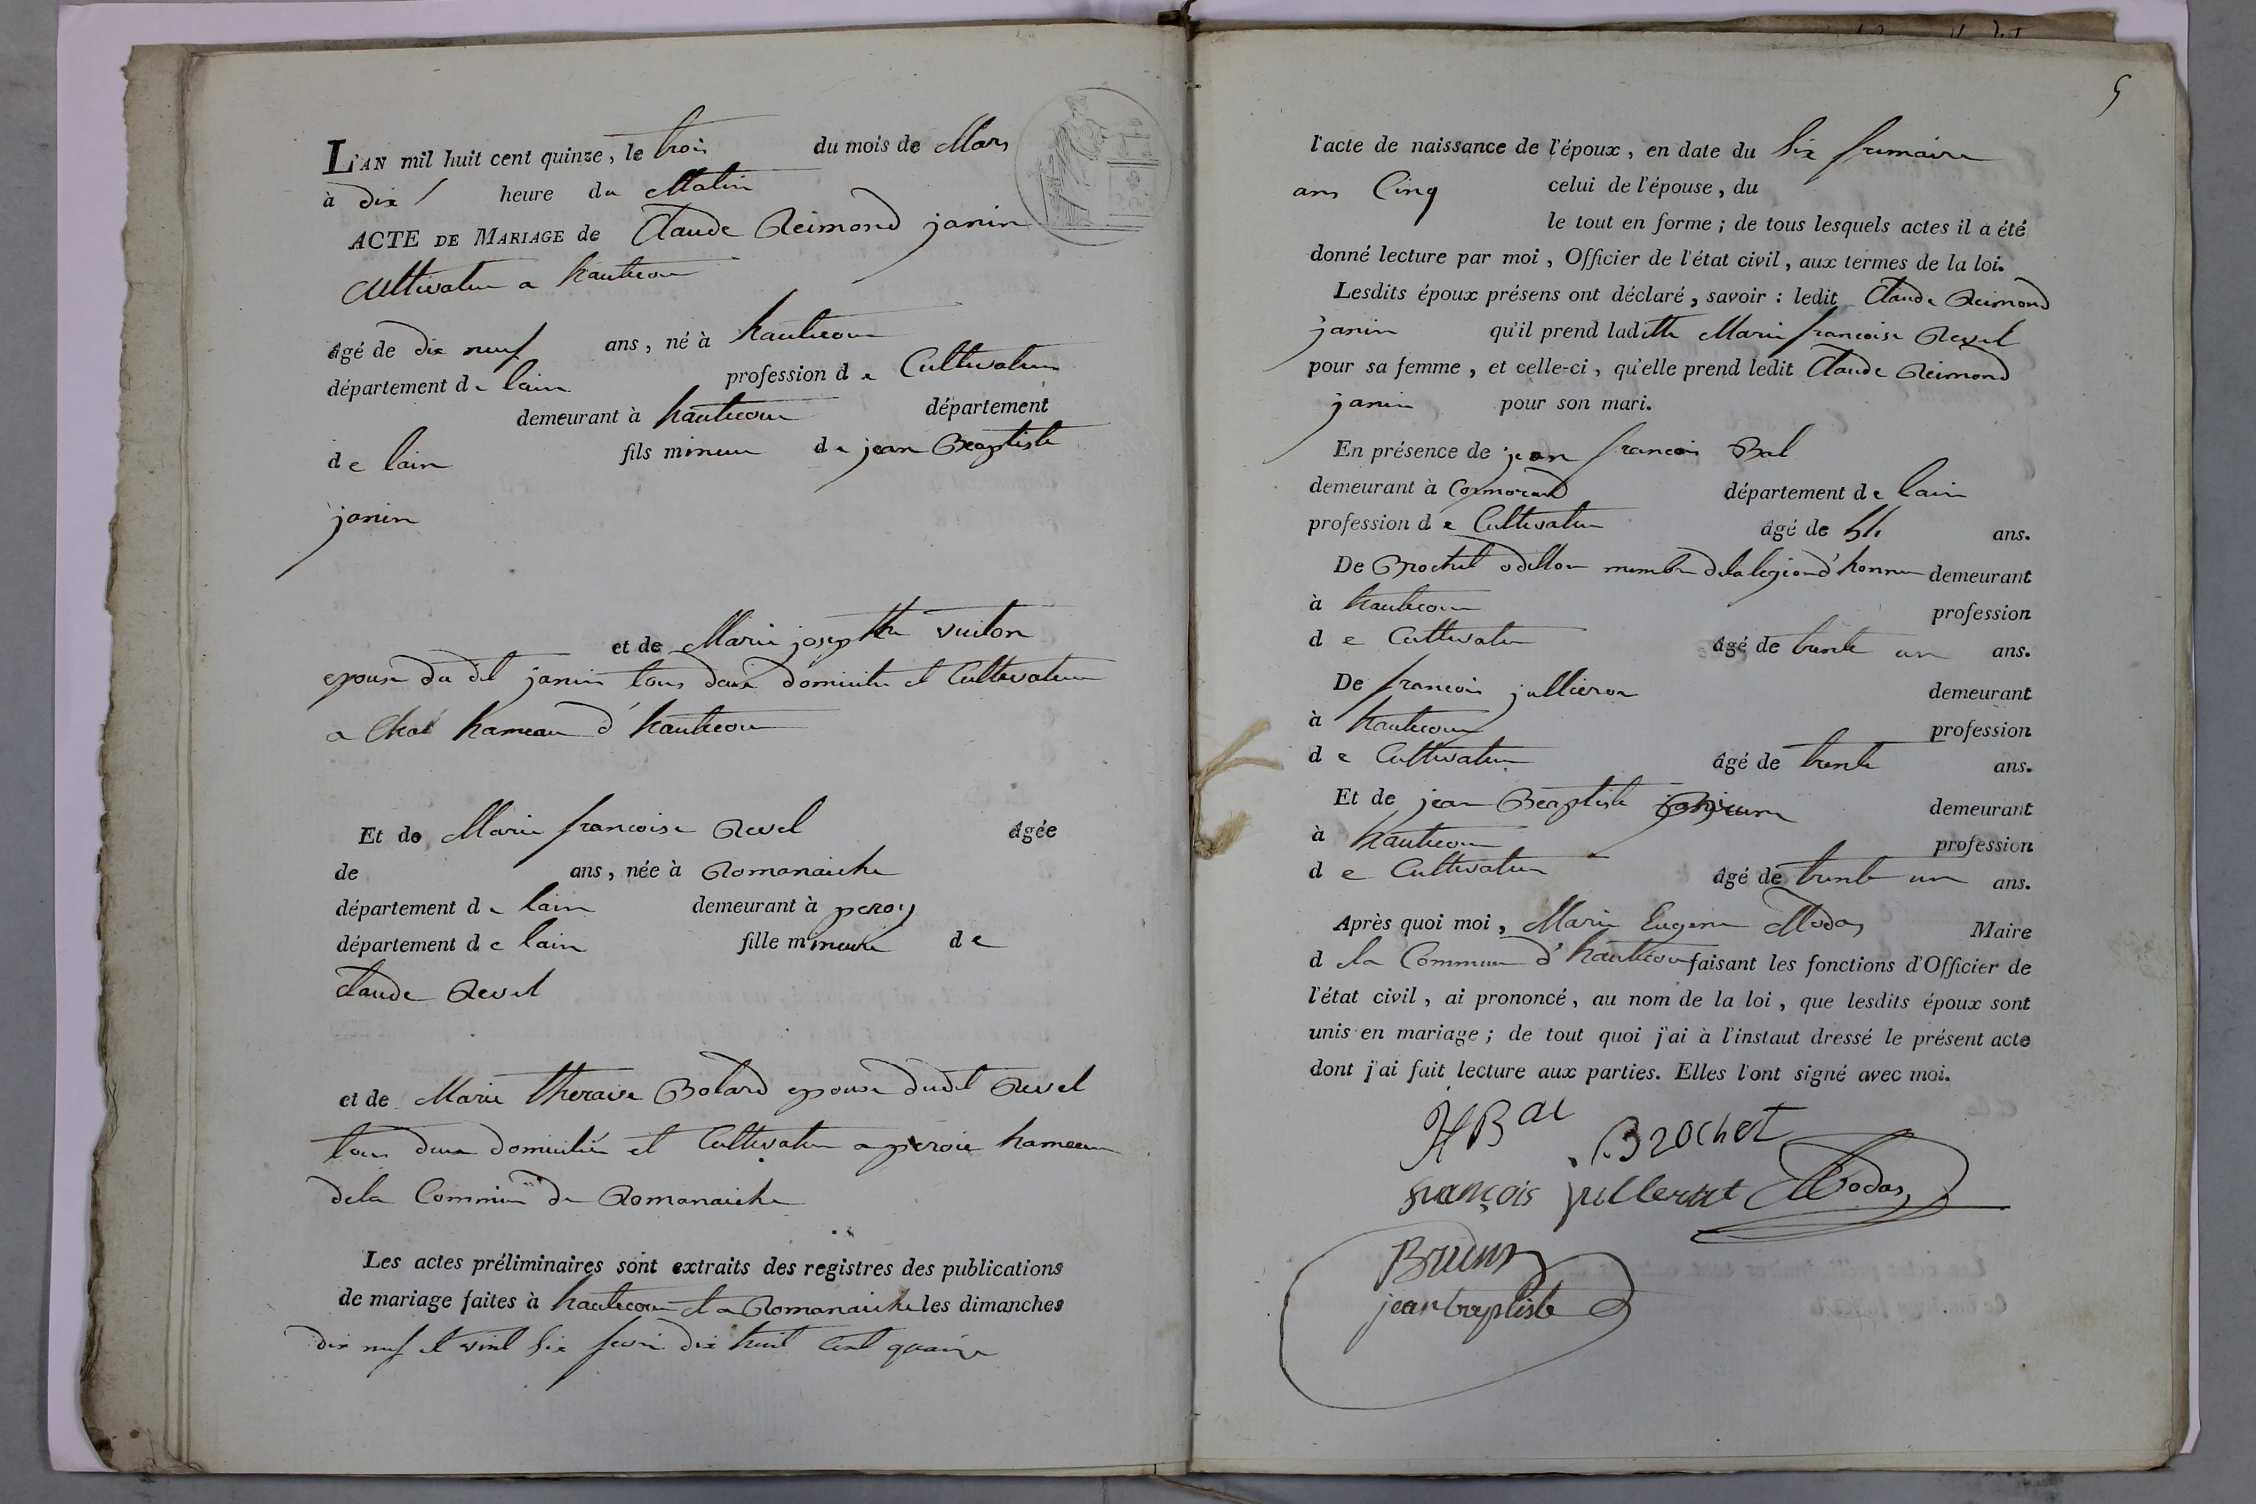 L'AN mil huit cent quinze, le trois du mois de Mars
à dix heure du Matin
ACTE DE MARIAGE de Claude Reimond janin
Cultivateur a hautecour
âgé de dix neuf ans, né à hautecour
département de lain profession de Cultivateur
demeurant à hautecour département
de lain fils mineur de jean Beaptiste
janin
et de Marie josephte vuiton
epouse du dit janin tous deux domicilie et Cultivateur
a Chal hameau d'hautecour
Et de Marie francoise Revel âgée
de ans, née à Romanaiche
département de lain demeurant à peroy
département de lain fille mineure de
Claude Revel
et de Marie theraise Bolard epouse dudit Revel
tous deux domicilié et Cultivateur a peroie hameau
dela Commune de Romanaiche
Les actes préliminaires sont extraits des registres des publications
de mariage faites à hautecour et a Romanaiche les dimanches
dix neuf et vint six fevrie dix huit cent quainze
5
l'acte de naissance de l'époux, en date du six frimaire
ans Cinq celui de l'épouse, du
le tout en forme; de tous lesquels actes il a été
donné lecture par moi, Officier de l'état civil, aux termes de la loi.
Lesdits époux présens ont déclaré, savoir: ledit Claude Reimond
janin qu'il prend laditte Marie francoise Revel
pour sa femme, et celle-ci, qu'elle prend ledit Claude Reimond
janin pour son mari.
En présence de jean francois Bal
demeurant à Cormorand département de lain
profession de Cultivateur âgé de ans.
De Brochet odillon membre dela legion d'honneur demeurant
à hautecour profession
de Cultivateur âgé de trente un ans.
De francois jullieron demeurant
à hautecour profession
de Cultivateur âgé de trente ans.
Et de jean Beaptiste demeurant
à hautecour profession
de Cultivateur âgé de trente un ans.
Après quoi moi, Marie Eugene Modas Maire
de la Commune d'hautecour faisant les fonctions d'Officier de
l'état civil, ai prononcé, au nom de la loi, que lesdits époux sont
unis en mariage; de tout quoi j'ai à l'instaut dressé le présent acte
dont j'ai fait lecture aux parties. Elles l'ont signé avec moi.
Bal
Brochet
françois Modas
Brunn
jean baptiste